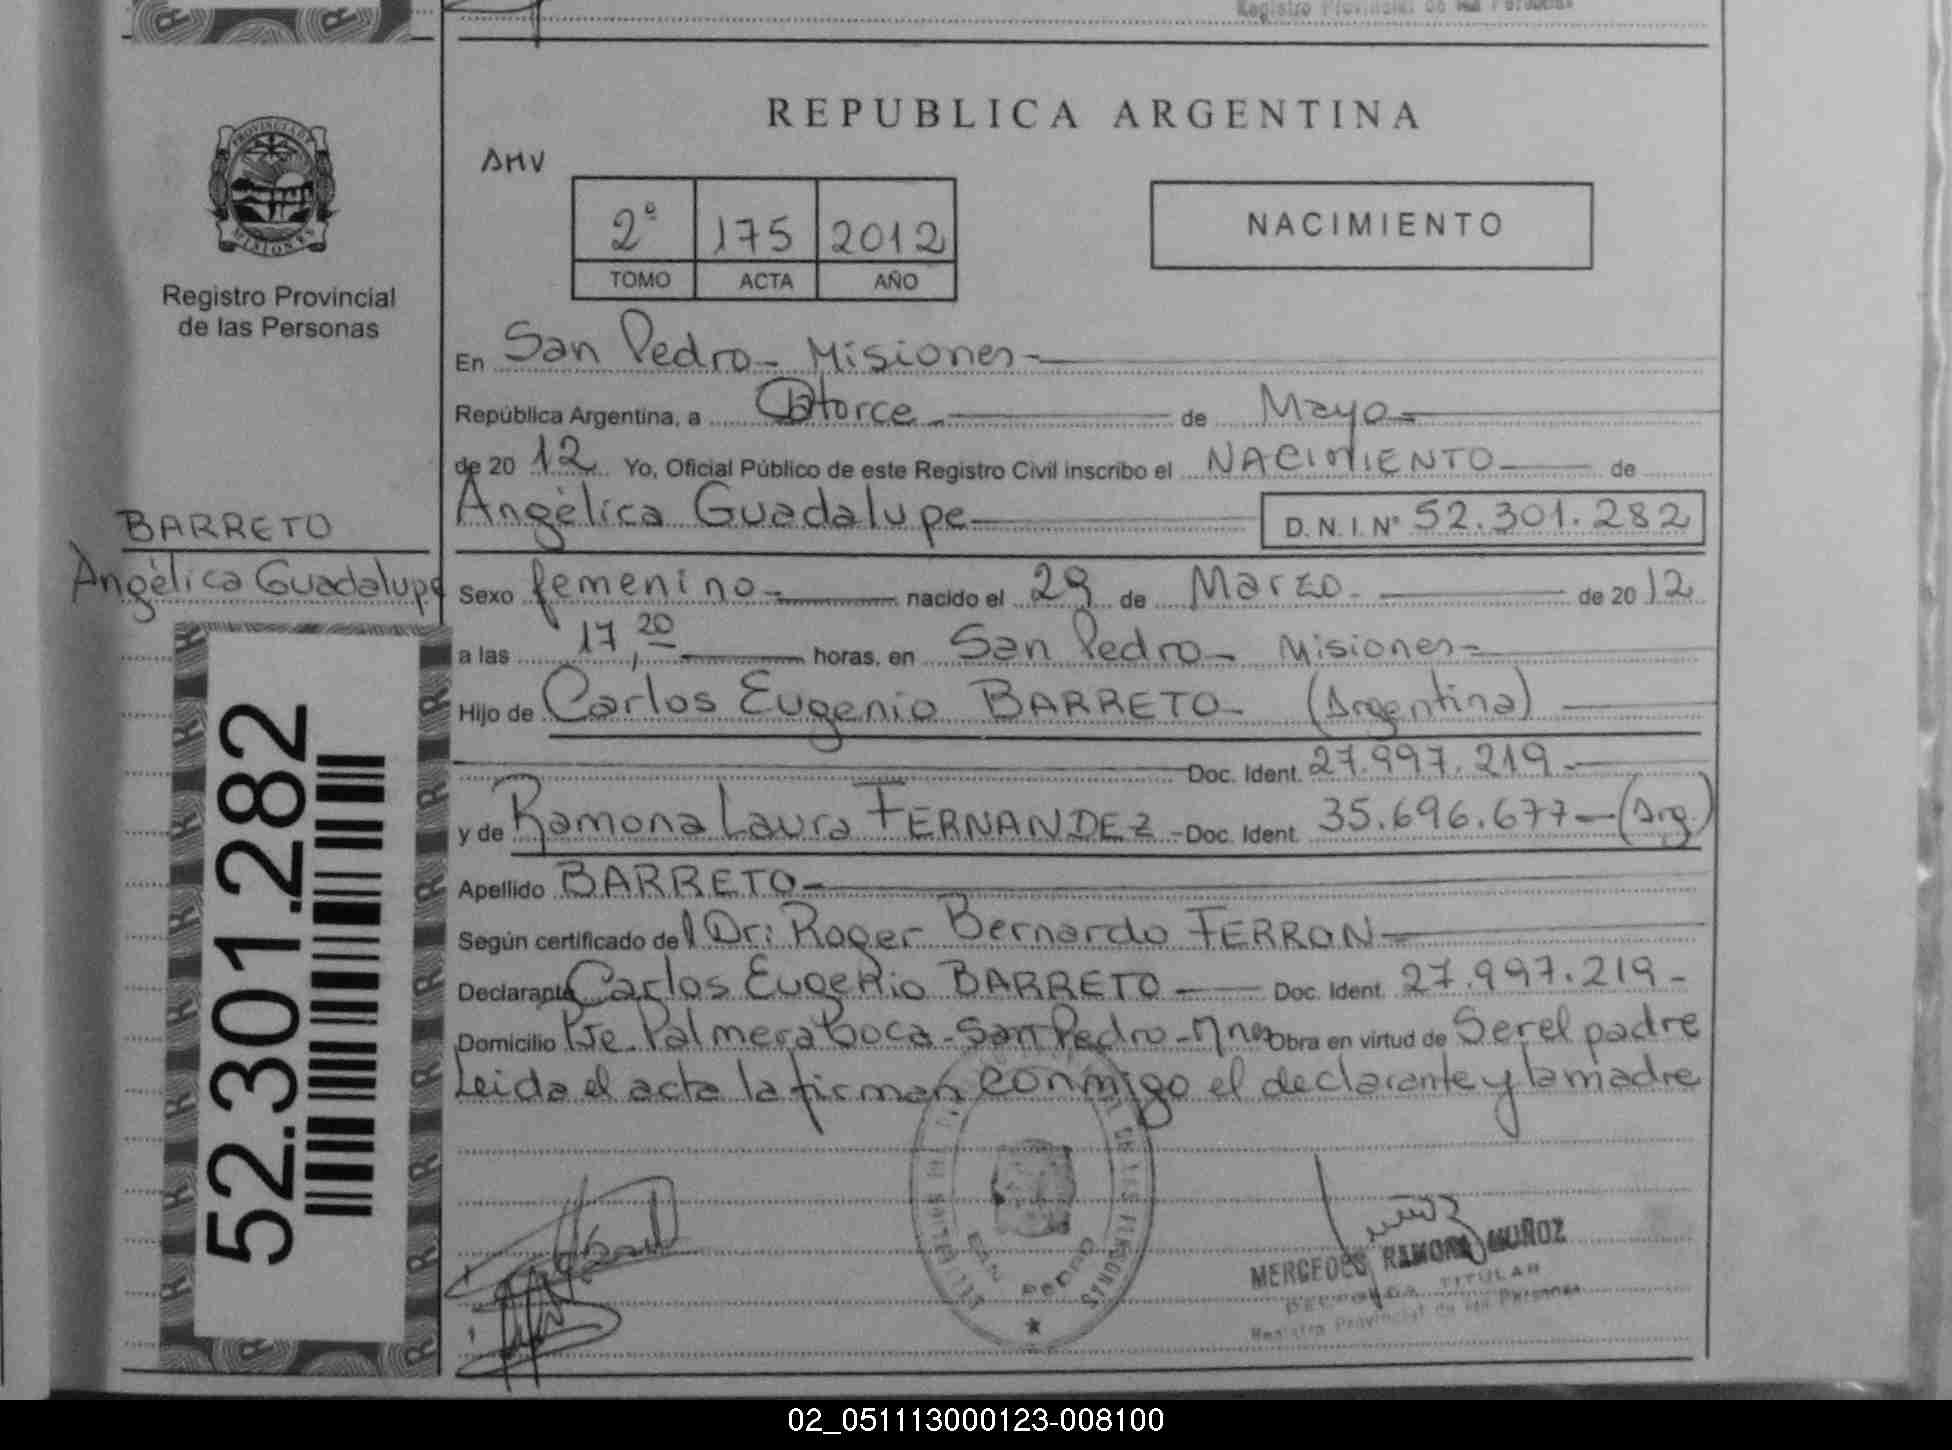 Registro Provincial de las Personas
PROVINCIA DE
MISIONES
Registro Provincial
de las Personas
BARRETO
Angélica Guadalupe
52.301.282
REPUBLICA ARGENTINA
AMV
2º 175 2012
TOMO ACTA AÑO
NACIMIENTO
En San Pedro - Misiones -
República Argentina, a Catorce de Mayo
de 20 12 Yo, Oficial Público de este Registro Civil inscribo el NACIMIENTO de
Angélica Guadalupe D.N.I.Nº 52.301.282
Sexo femenino nacido el 29 de Marzo de 20 12
a las 17,20 horas, en San Pedro - Misiones -
Hijo de Carlos Eugenio BARRETO - (Argentina)
Doc. Ident. 27.997.219 -
y de Ramona Laura FERNANDEZ - Doc. Ident. 35.696.677 - (Arg.)
Apellido BARRETO -
Según certificado del Dr: Roger Bernardo FERRON -
Declarante Carlos Eugenio BARRETO - Doc. Ident. 27.997.219 -
Domicilio Pje. Palmera Boca - San Pedro - Mnes Obra en virtud de Ser el padre
Leida el acta la firman conmigo el declarante y la madre
DE LAS PERSONAS
SAN PEDRO
Muñoz
MERCEDES RAMONA MUÑOZ
TITULAR
Registro Provincial de las Personas
02_051113000123-008100